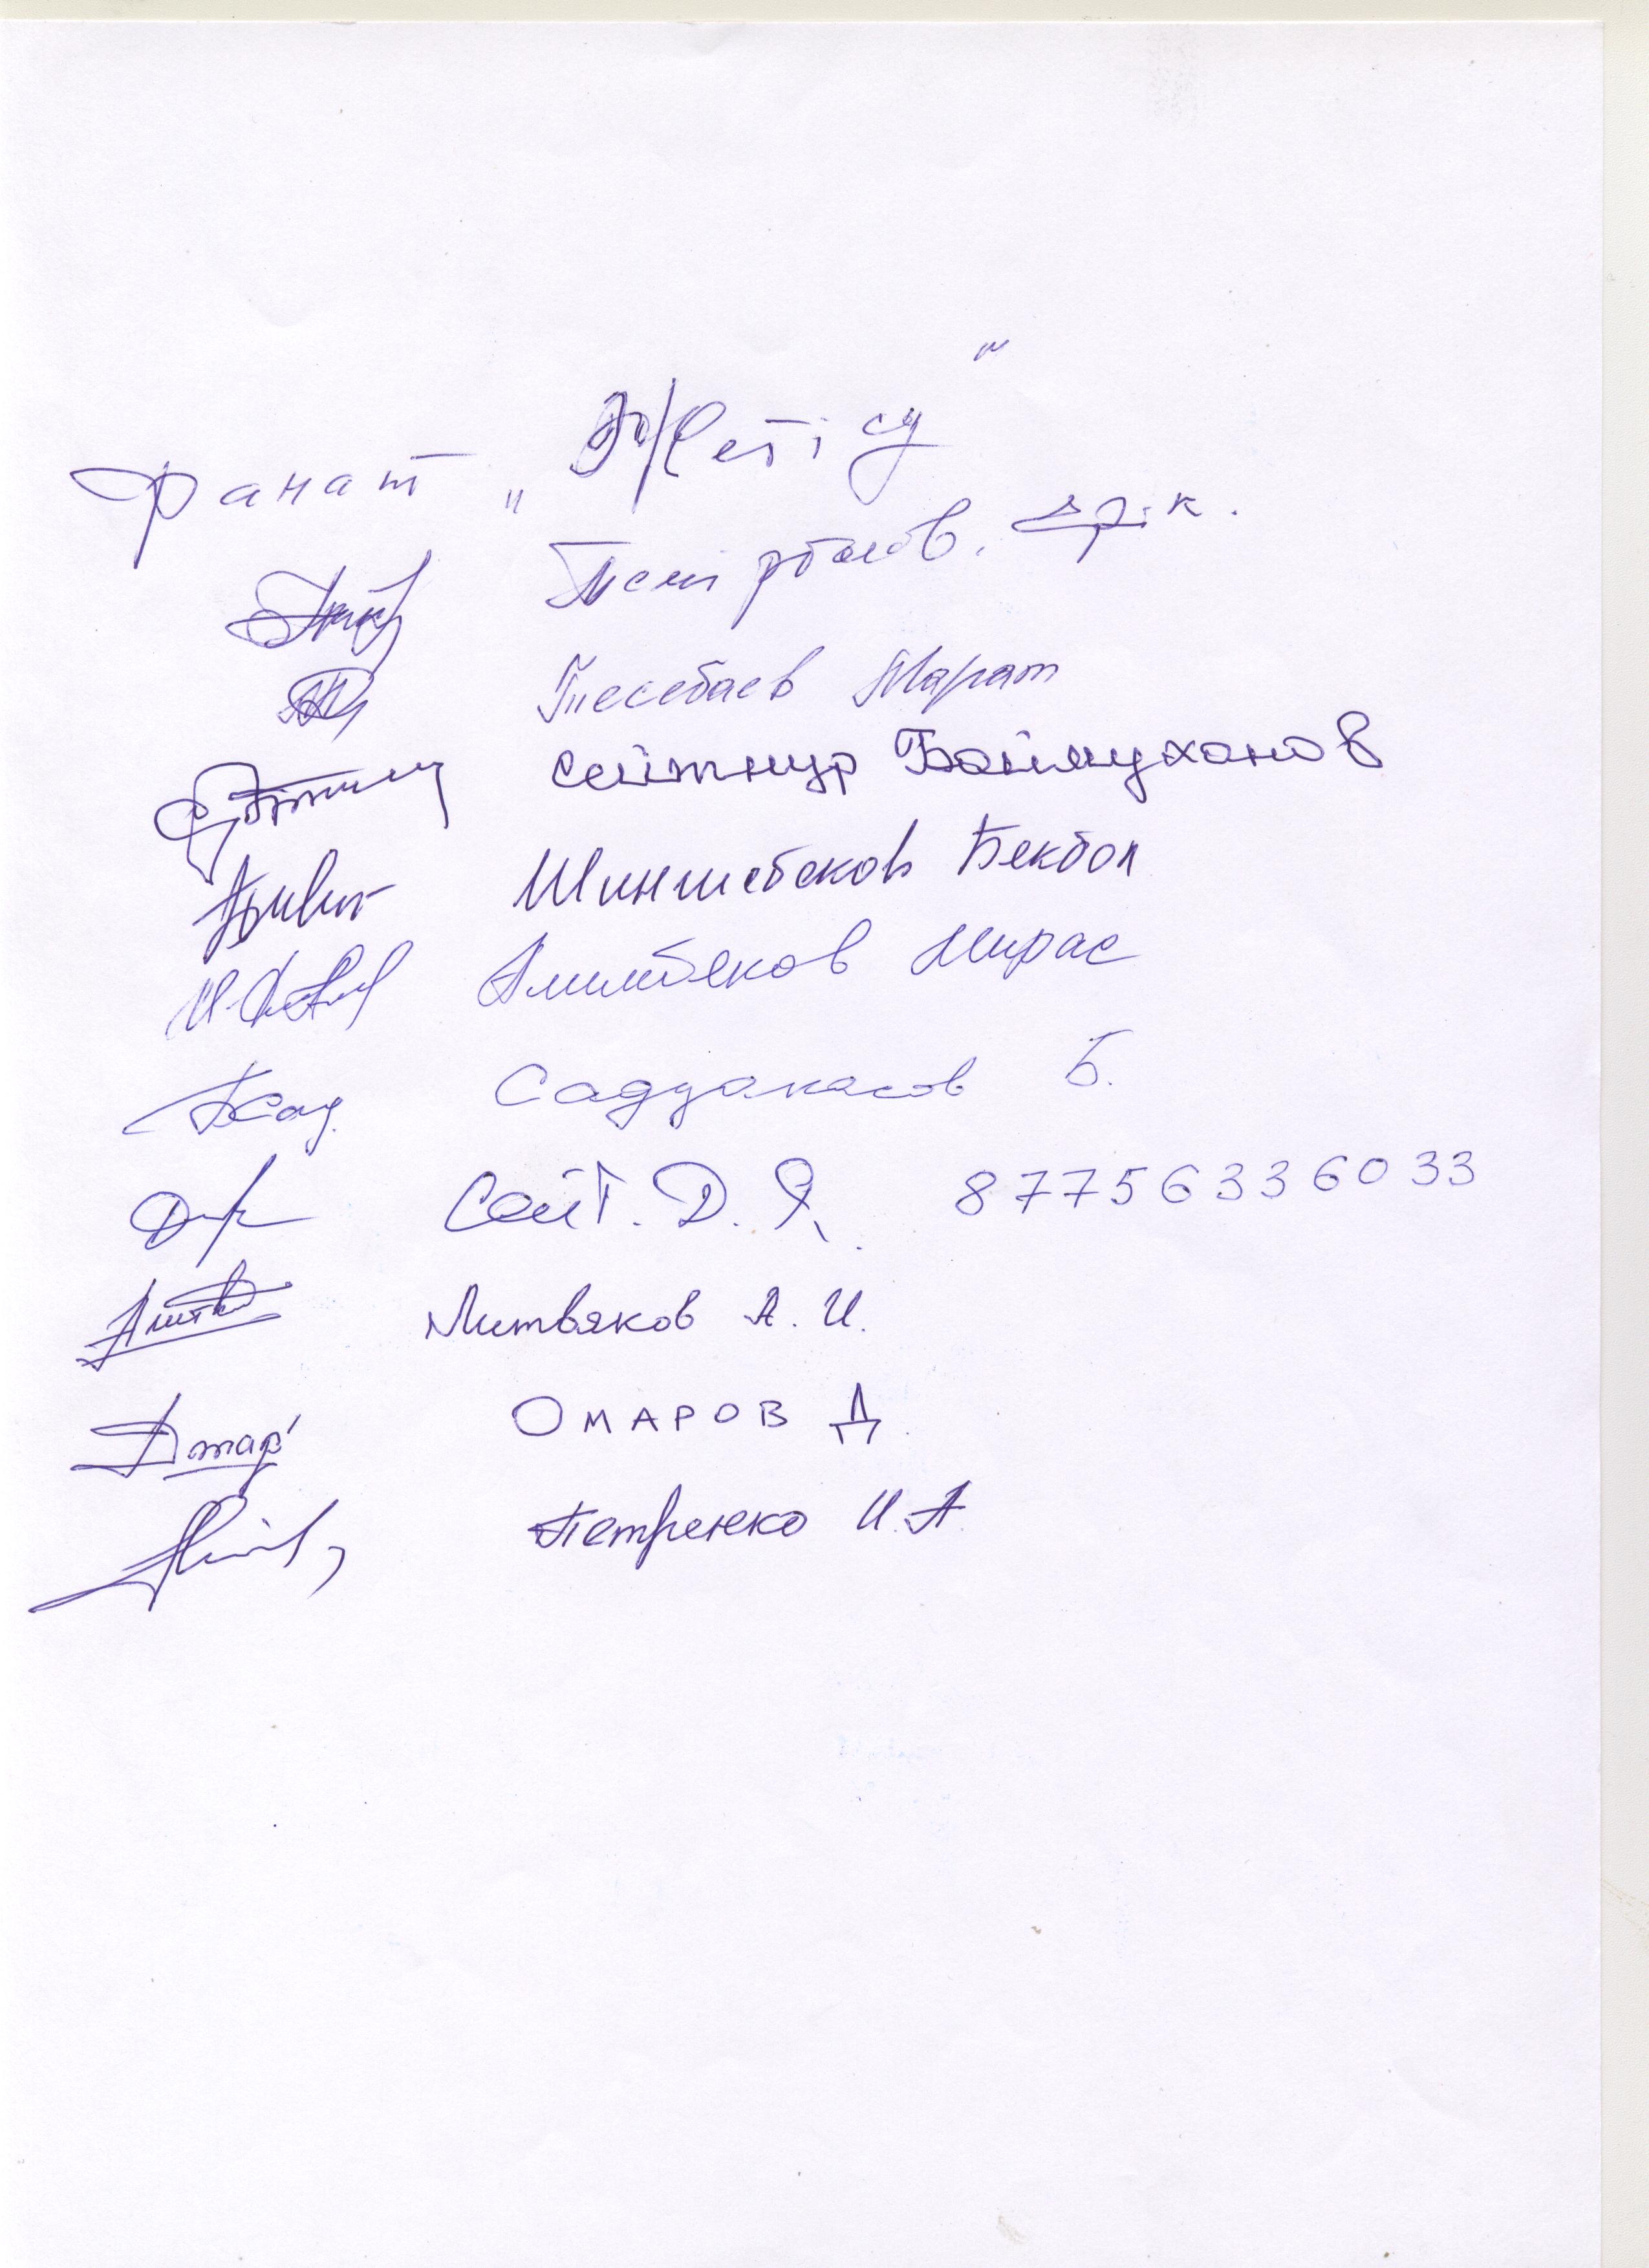 фанат „Жетісу"
Темірболов. Ерік.
Тесебаев Марат
Сейтнур Баймуханов
Шиншибеков Бекбол
Алимбеков Мирас
Садуакасов Б.
Сейт. Д. Я. 87756336033
Литвяков А. И.
ОМАРОВ Д
Петренко И. А.